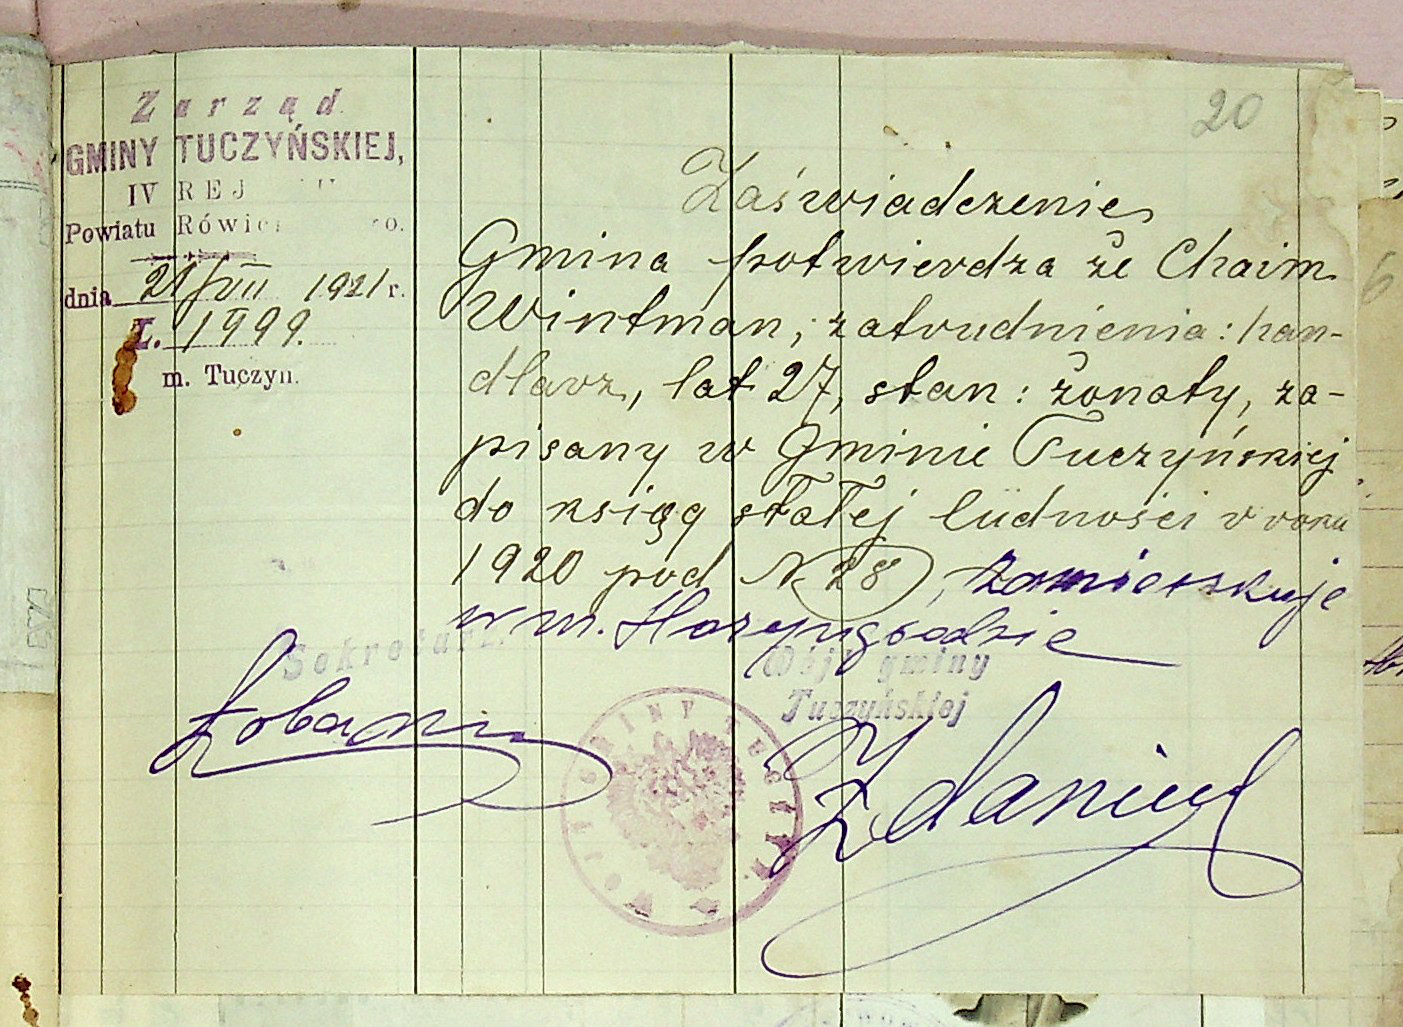 20
Zarząd
GMINY TUCZYŃSKIEJ,
IV REJ
Powiatu Rówień o.
dnia 21/VII 1921 r.
L. 1999.
m. Tuczyn.
Zaświadczenie
Gmina potwierdza że Chaim
Wintman, zatrudnienia: han-
dlarz, lat 27, stan: żonaty, za-
pisany w Gminie Tuczyńskiej
do ksiąg stałej ludności w roku
1920 pod N 28, zamieszkuje
w m. Horyngrodzie
Sekretarz
Wójt gminy
Tuczyńskiej
WÓJT GMINY